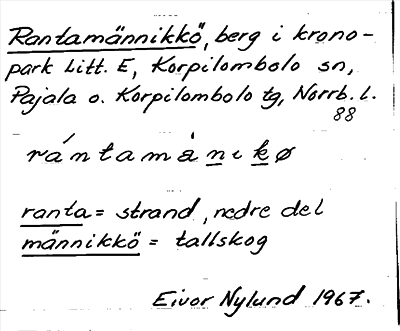 Rantamännikkö, berg i krono-
park Litt. E, Korpilombolo sn,
Pajala o. Korpilombolo tg, Norrb. l.
88
rántamànikø
ranta = strand, nedre del
männikkö = tallskog
Eivor Nylund 1967.